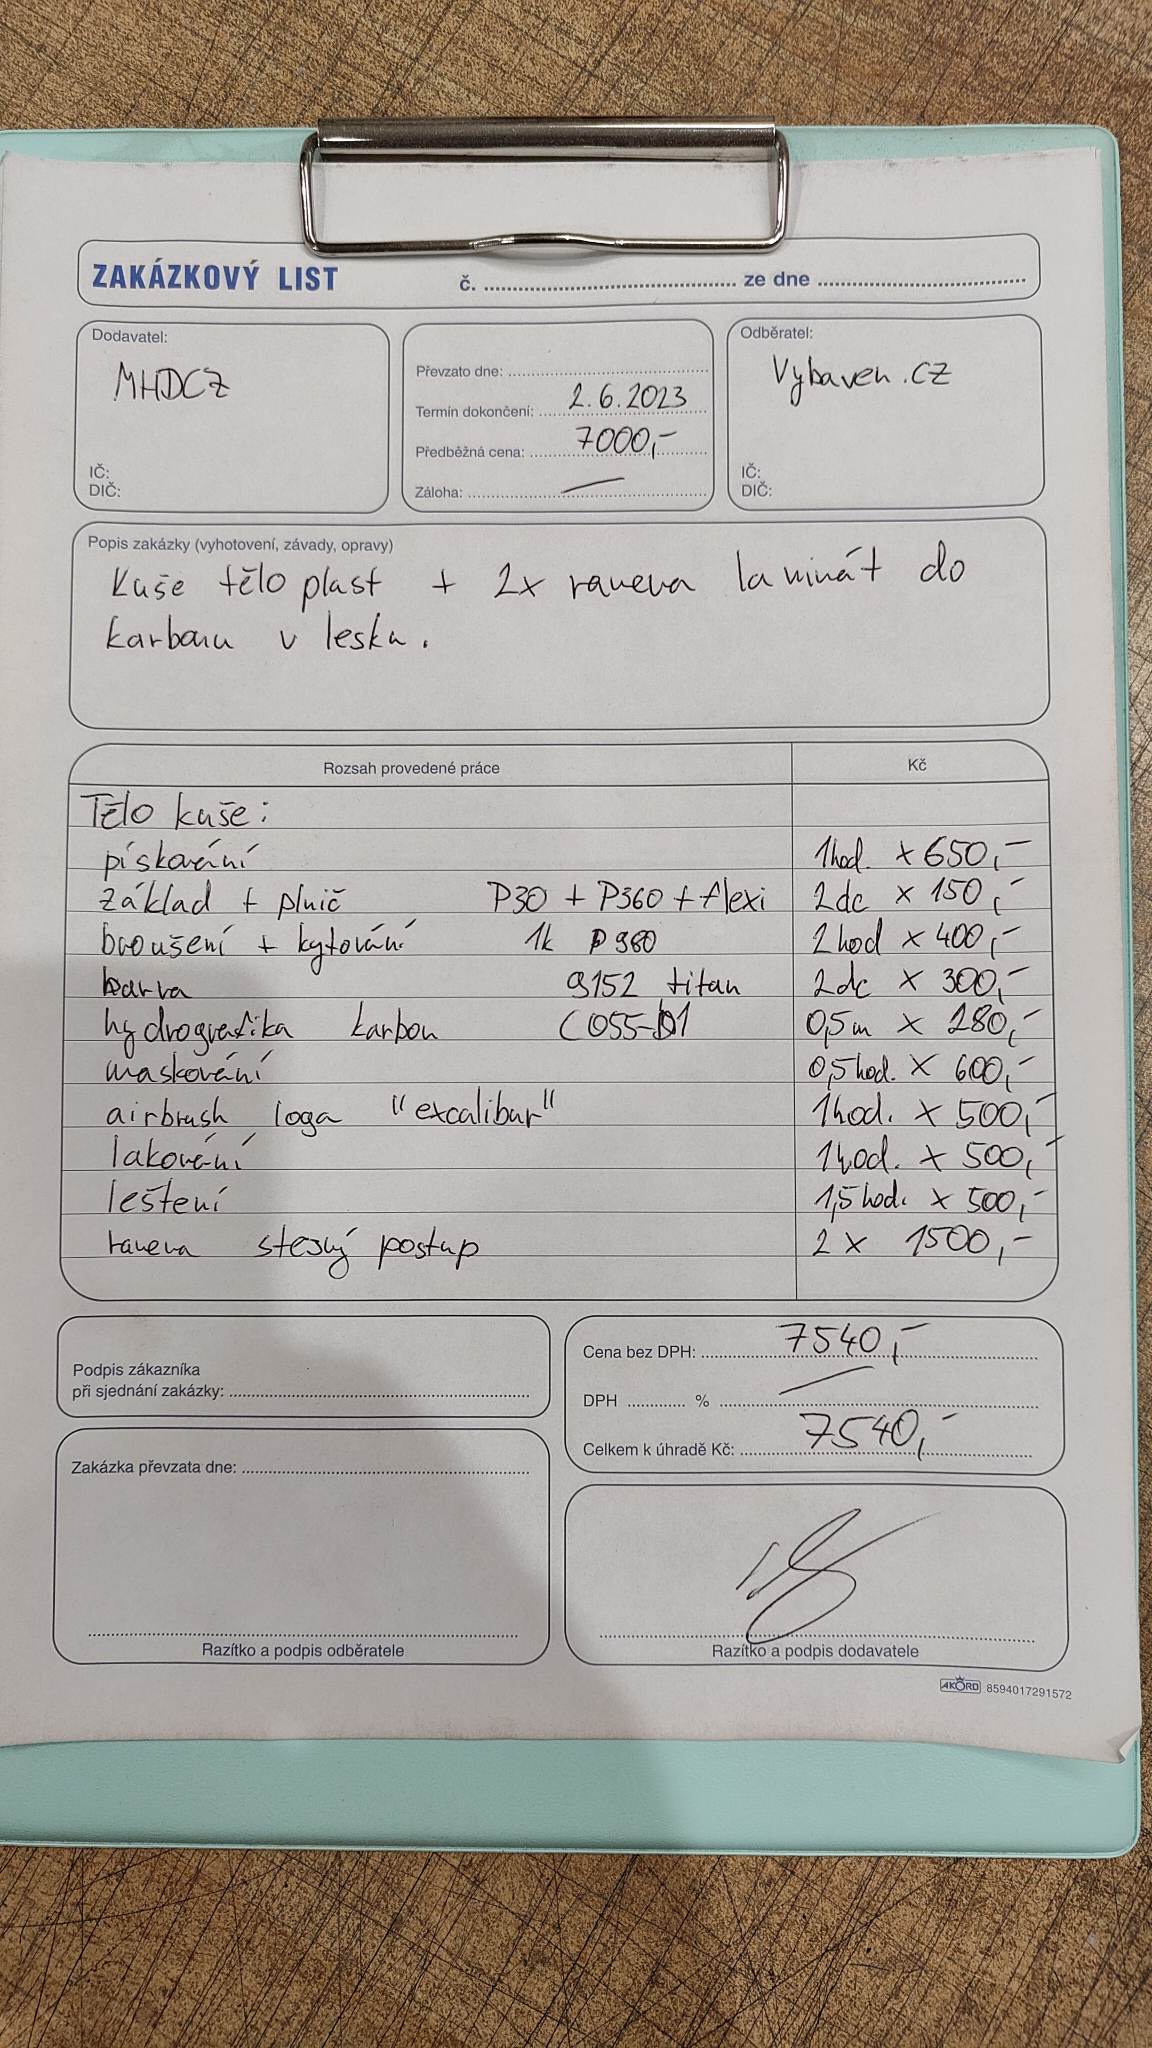 ZAKÁZKOVÝ LIST č. ze dne
Dodavatel:
MHDCZ
IČ:
DIČ:
Převzato dne:
Termín dokončení: 2.6.2023
Předběžná cena: 7000,-
Záloha: —
Odběratel:
Vybaven.cz
IČ:
DIČ:
Popis zakázky (vyhotovení, závady, opravy)
Kuše tělo plast + 2x ramena laminát do
karbonu v lesku.
Rozsah provedené práce Kč
Tělo kuše:
pískování 1hod. x 650,-
základ + plnič P30 + P360 + flexi 2dc x 150,-
broušení + kytování 1k P980 2hod x 400,-
barva 9152 titan 2dc x 300,-
hydrografika karbon C055-D1 0,5m x 280,-
maskování 0,5hod. x 600,-
airbrush loga "excalibur" 1hod. x 500,-
lakování 1hod. x 500,-
leštení 1,5hod. x 500,-
ramena stejný postup 2x 1500,-
Podpis zákazníka
při sjednání zakázky:
Zakázka převzata dne:
Razítko a podpis odběratele
Cena bez DPH: 7540,-
DPH % —
Celkem k úhradě Kč: 7540,-
Razítko a podpis dodavatele
AKORD 8594017291572